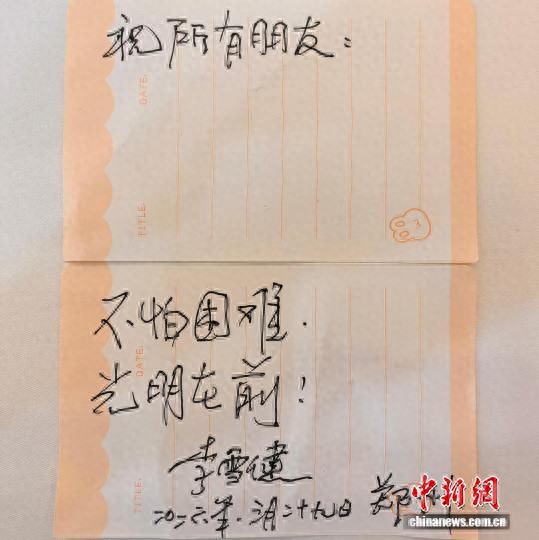 祝所有朋友：
DATE:
TITLE:
不怕困难.
光明在前！
DATE:
TITLE:
李雪健
二〇二六年. 月二十九日
郑
中新網
www.chinanews.com.cn